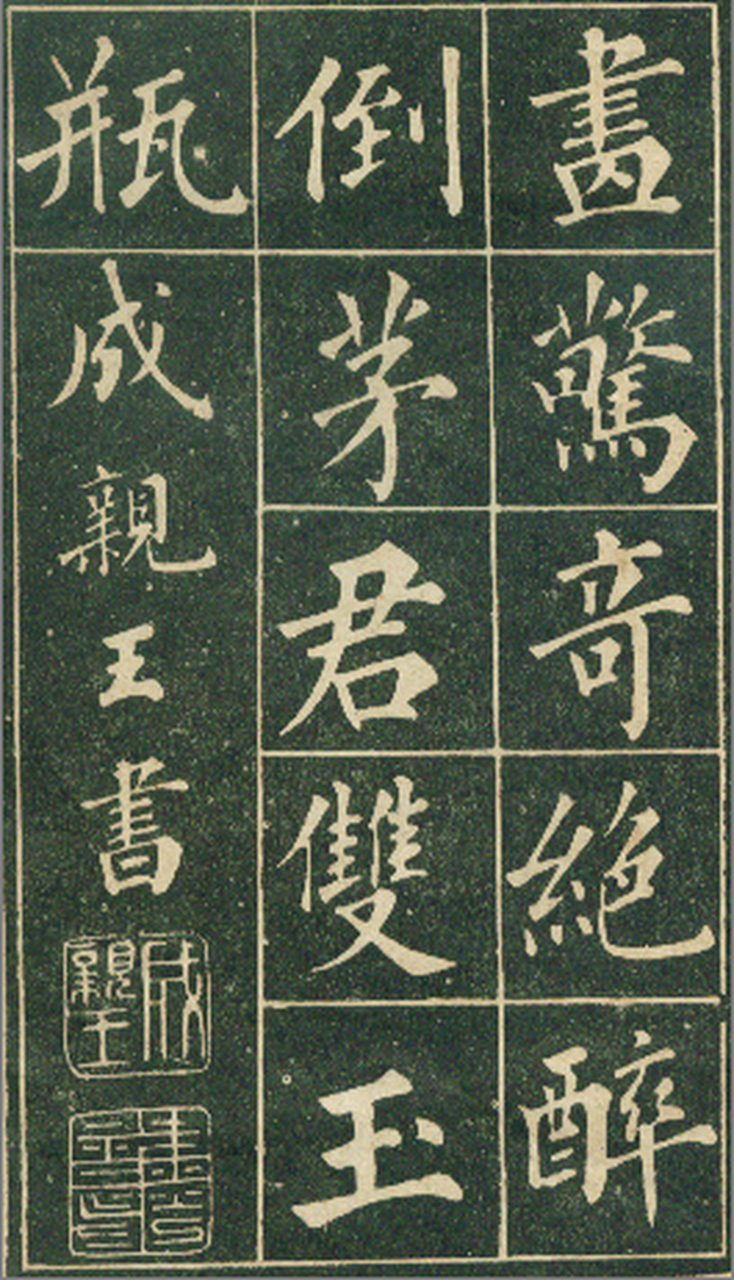 畫驚奇絶醉
倒茅君雙玉
瓶
成親王書
成親王